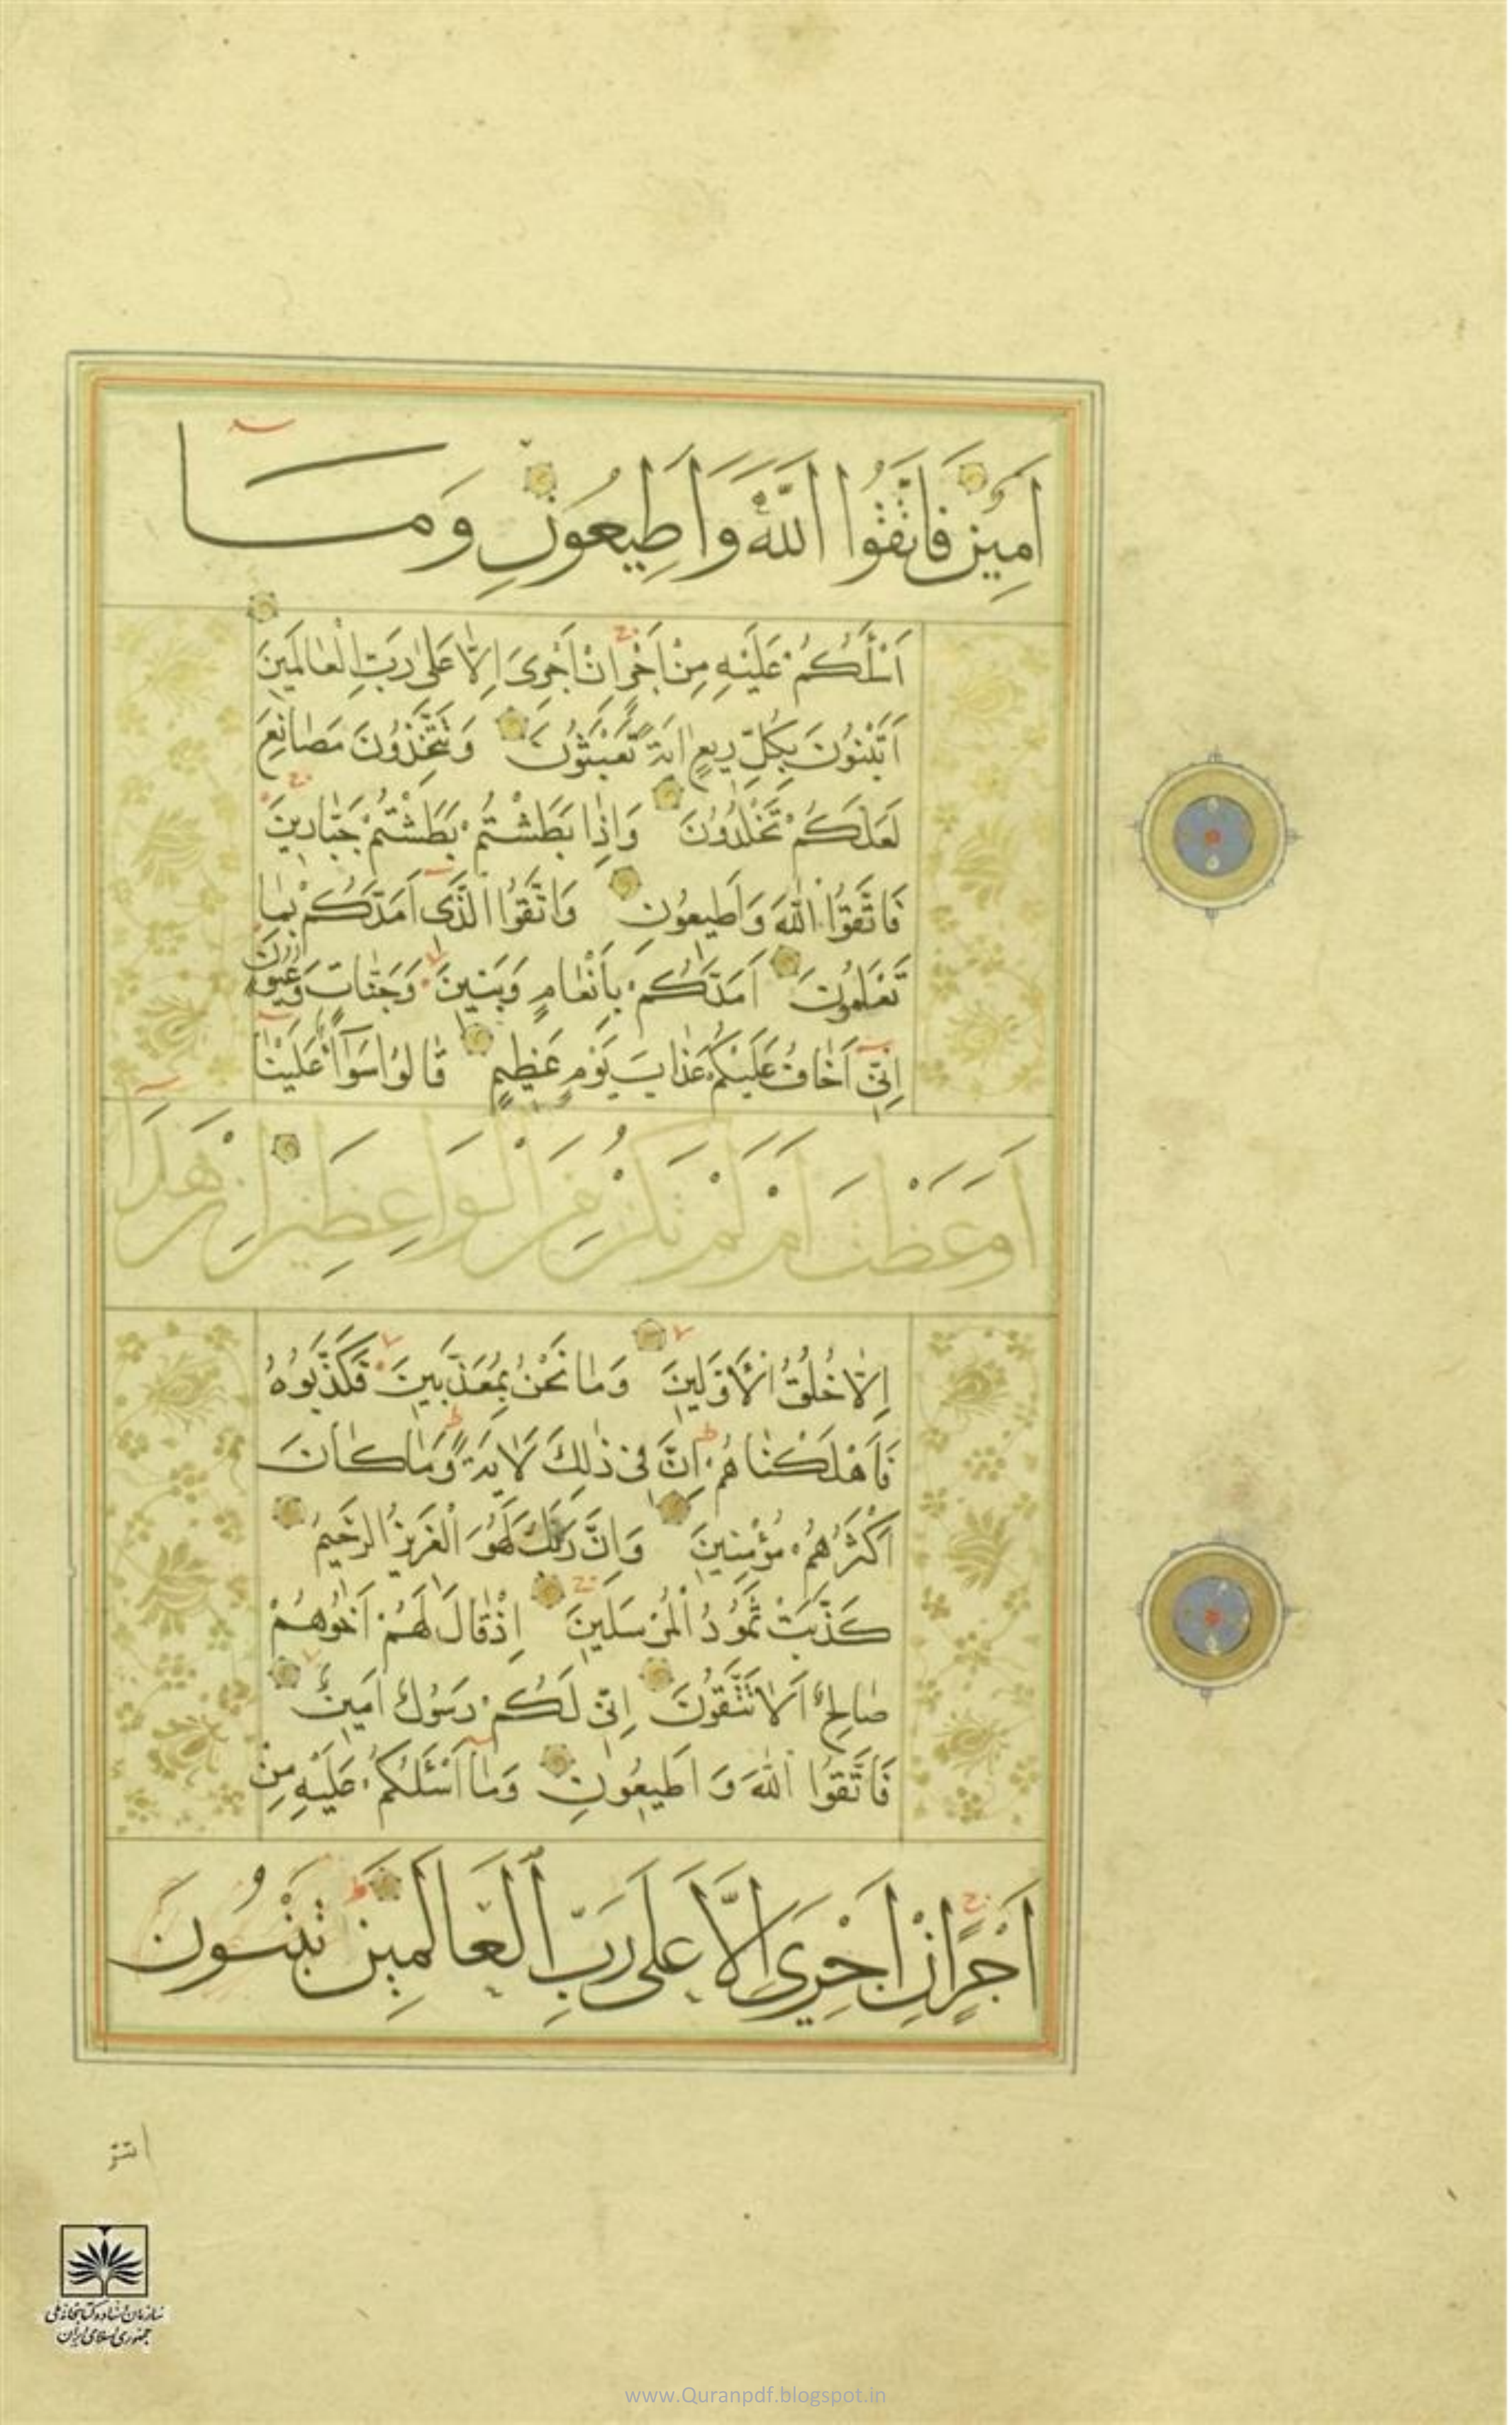 اَمِينٌ فَاتَّقُوا اللّٰهَ وَاَطِيعُونِ وَمَا
اَسْئَلُكُمْ عَلَيْهِ مِنْ اَجْرٍ اِنْ اَجْرِىَ اِلَّا عَلٰى رَبِّ الْعَالَمِينَ
اَتَبْنُونَ بِكُلِّ رِيعٍ اٰيَةً تَعْبَثُونَ وَتَتَّخِذُونَ مَصَانِعَ
لَعَلَّكُمْ تَخْلُدُونَ وَاِذَا بَطَشْتُمْ بَطَشْتُمْ جَبَّارِينَ
فَاتَّقُوا اللّٰهَ وَاَطِيعُونِ وَاتَّقُوا الَّذِى اَمَدَّكُمْ بِمَا
تَعْلَمُونَ اَمَدَّكُمْ بِاَنْعَامٍ وَبَنِينَ وَجَنَّاتٍ وَعُيُونٍ
اِنِّى اَخَافُ عَلَيْكُمْ عَذَابَ يَوْمٍ عَظِيمٍ قَالُوا سَوَآءٌ عَلَيْنَا
اَوَعَظْتَ اَمْ لَمْ تَكُنْ مِنَ الْوَاعِظِينَ اِنْ هٰذَا
اِلَّا خُلُقُ الْاَوَّلِينَ وَمَا نَحْنُ بِمُعَذَّبِينَ فَكَذَّبُوهُ
فَاَهْلَكْنَاهُمْ اِنَّ فِى ذٰلِكَ لَاٰيَةً وَمَا كَانَ
اَكْثَرُهُمْ مُؤْمِنِينَ وَاِنَّ رَبَّكَ لَهُوَ الْعَزِيزُ الرَّحِيمُ
كَذَّبَتْ ثَمُودُ الْمُرْسَلِينَ اِذْ قَالَ لَهُمْ اَخُوهُمْ
صَالِحٌ اَلَا تَتَّقُونَ اِنِّى لَكُمْ رَسُولٌ اَمِينٌ
فَاتَّقُوا اللّٰهَ وَاَطِيعُونِ وَمَا اَسْئَلُكُمْ عَلَيْهِ مِنْ
اَجْرٍ اِنْ اَجْرِىَ اِلَّا عَلٰى رَبِّ الْعَالَمِينَ
سازمان اسناد و کتابخانه ملی
جمهوری اسلامی ایران
www.Quranpdf.blogspot.in